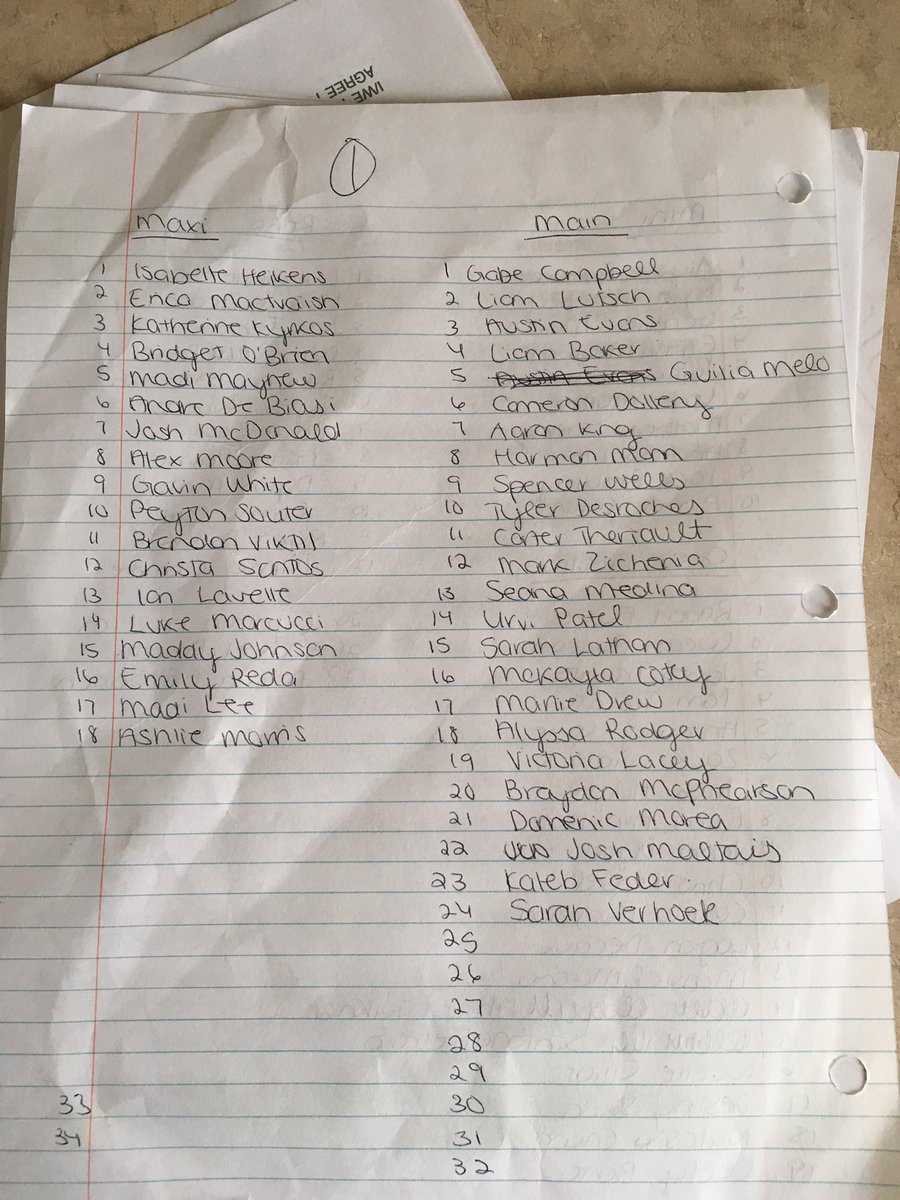 I/WE
AGREE
1
Maxi
1 Isabelle Heikens
2 Erica Mactvaish
3 Katherine Kyrkos
4 Bridget O'Brien
5 Madi Mayhew
6 Andre De Biasi
7 Josh McDonald
8 Alex Moore
9 Gavin White
10 Peyton Souter
11 Brendan Viktil
12 Christa Santos
13 Ian Lavelle
14 Luke Marcucci
15 Maday Johnson
16 Emily Reda
17 Madi Lee
18 Ashlie Morris
33
34
Main
1 Gabe Campbell
2 Liam Lutsch
3 Austin Evans
4 Liam Baker
5 Austin Evans Guilia Melo
6 Cameron Dallery
7 Aaron King
8 Harmon Mann
9 Spencer Wells
10 Tyler Desroches
11 Carter Theriault
12 Mark Zichenia
13 Seana Medina
14 Urvi Patel
15 Sarah Latham
16 Mckayla Cotey
17 Marie Drew
18 Alyssa Rodger
19 Victoria Lacey
20 Braydon McPhearson
21 Domenic Marea
22 Josh Maltais
23 Kaleb Feder
24 Sarah Verhoek
25
26
27
28
29
30
31
32